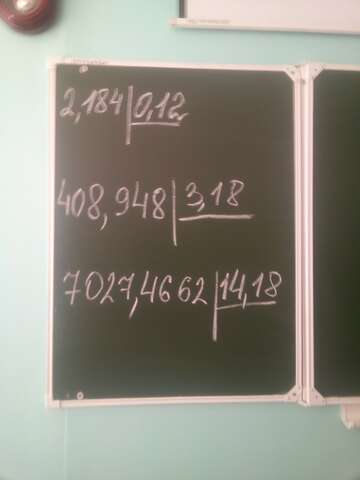 2,184 0,12
408,948 3,18
7027,4662 14,18